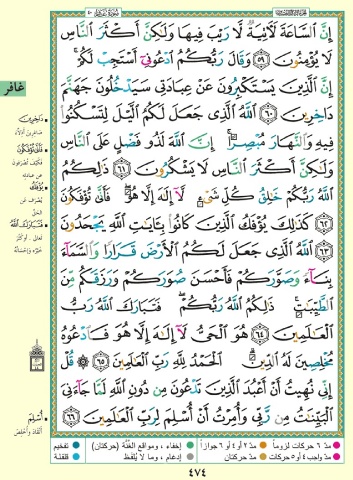 إِنَّ ٱلسَّاعَةَ لَءَاتِيَةٌ لَّا رَيْبَ فِيهَا وَلَٰكِنَّ أَكْثَرَ ٱلنَّاسِ
لَا يُؤْمِنُونَ ٥٩ وَقَالَ رَبُّكُمُ ٱدْعُونِىٓ أَسْتَجِبْ لَكُمْ ۚ
إِنَّ ٱلَّذِينَ يَسْتَكْبِرُونَ عَنْ عِبَادَتِى سَيَدْخُلُونَ جَهَنَّمَ
دَاخِرِينَ ٦٠ ٱللَّهُ ٱلَّذِى جَعَلَ لَكُمُ ٱلَّيْلَ لِتَسْكُنُوا۟
فِيهِ وَٱلنَّهَارَ مُبْصِرًا ۚ إِنَّ ٱللَّهَ لَذُو فَضْلٍ عَلَى ٱلنَّاسِ
وَلَٰكِنَّ أَكْثَرَ ٱلنَّاسِ لَا يَشْكُرُونَ ٦١ ذَٰلِكُمُ
ٱللَّهُ رَبُّكُمْ خَٰلِقُ كُلِّ شَىْءٍ لَّآ إِلَٰهَ إِلَّا هُوَ ۖ فَأَنَّىٰ تُؤْفَكُونَ
٦٢ كَذَٰلِكَ يُؤْفَكُ ٱلَّذِينَ كَانُوا۟ بِـَٔايَٰتِ ٱللَّهِ يَجْحَدُونَ
٦٣ ٱللَّهُ ٱلَّذِى جَعَلَ لَكُمُ ٱلْأَرْضَ قَرَارًا وَٱلسَّمَآءَ
بِنَآءً وَصَوَّرَكُمْ فَأَحْسَنَ صُوَرَكُمْ وَرَزَقَكُم مِّنَ
ٱلطَّيِّبَٰتِ ۚ ذَٰلِكُمُ ٱللَّهُ رَبُّكُمْ ۖ فَتَبَارَكَ ٱللَّهُ رَبُّ
ٱلْعَٰلَمِينَ ٦٤ هُوَ ٱلْحَىُّ لَآ إِلَٰهَ إِلَّا هُوَ فَٱدْعُوهُ
مُخْلِصِينَ لَهُ ٱلدِّينَ ۗ ٱلْحَمْدُ لِلَّهِ رَبِّ ٱلْعَٰلَمِينَ ٦٥ قُلْ
إِنِّى نُهِيتُ أَنْ أَعْبُدَ ٱلَّذِينَ تَدْعُونَ مِن دُونِ ٱللَّهِ لَمَّا جَآءَنِىَ
ٱلْبَيِّنَٰتُ مِن رَّبِّى وَأُمِرْتُ أَنْ أُسْلِمَ لِرَبِّ ٱلْعَٰلَمِينَ ٦٦
غافر
دَاخِرِينَ
صَاغِرِينَ أَذِلَّاءَ
فَأَنَّىٰ تُؤْفَكُونَ
فَكَيْفَ تُصْرَفُونَ
عَن عِبَادَتِهِ
يُؤْفَكُ
يُصْرَفُ عَنِ
الحَقِّ
فَتَبَارَكَ ٱللَّهُ
تَعَالَى . أَوْ كَثُرَ
خَيْرُهُ وَإِحْسَانُهُ
أُسْلِمَ
أَنْقَادَ وَأُخْلِصَ
مدّ ٦ حركات لزوماً
مدّ ٢ أو ٤ أو ٦ جوازاً
إخفاء ، ومواقع الغُنَّة (حركتان)
تفخيم
مدّ واجب ٤ أو ٥ حركات
مدّ حركتان
إدغام ، وما لا يُلفَظ
قلقلة
٤٧٤